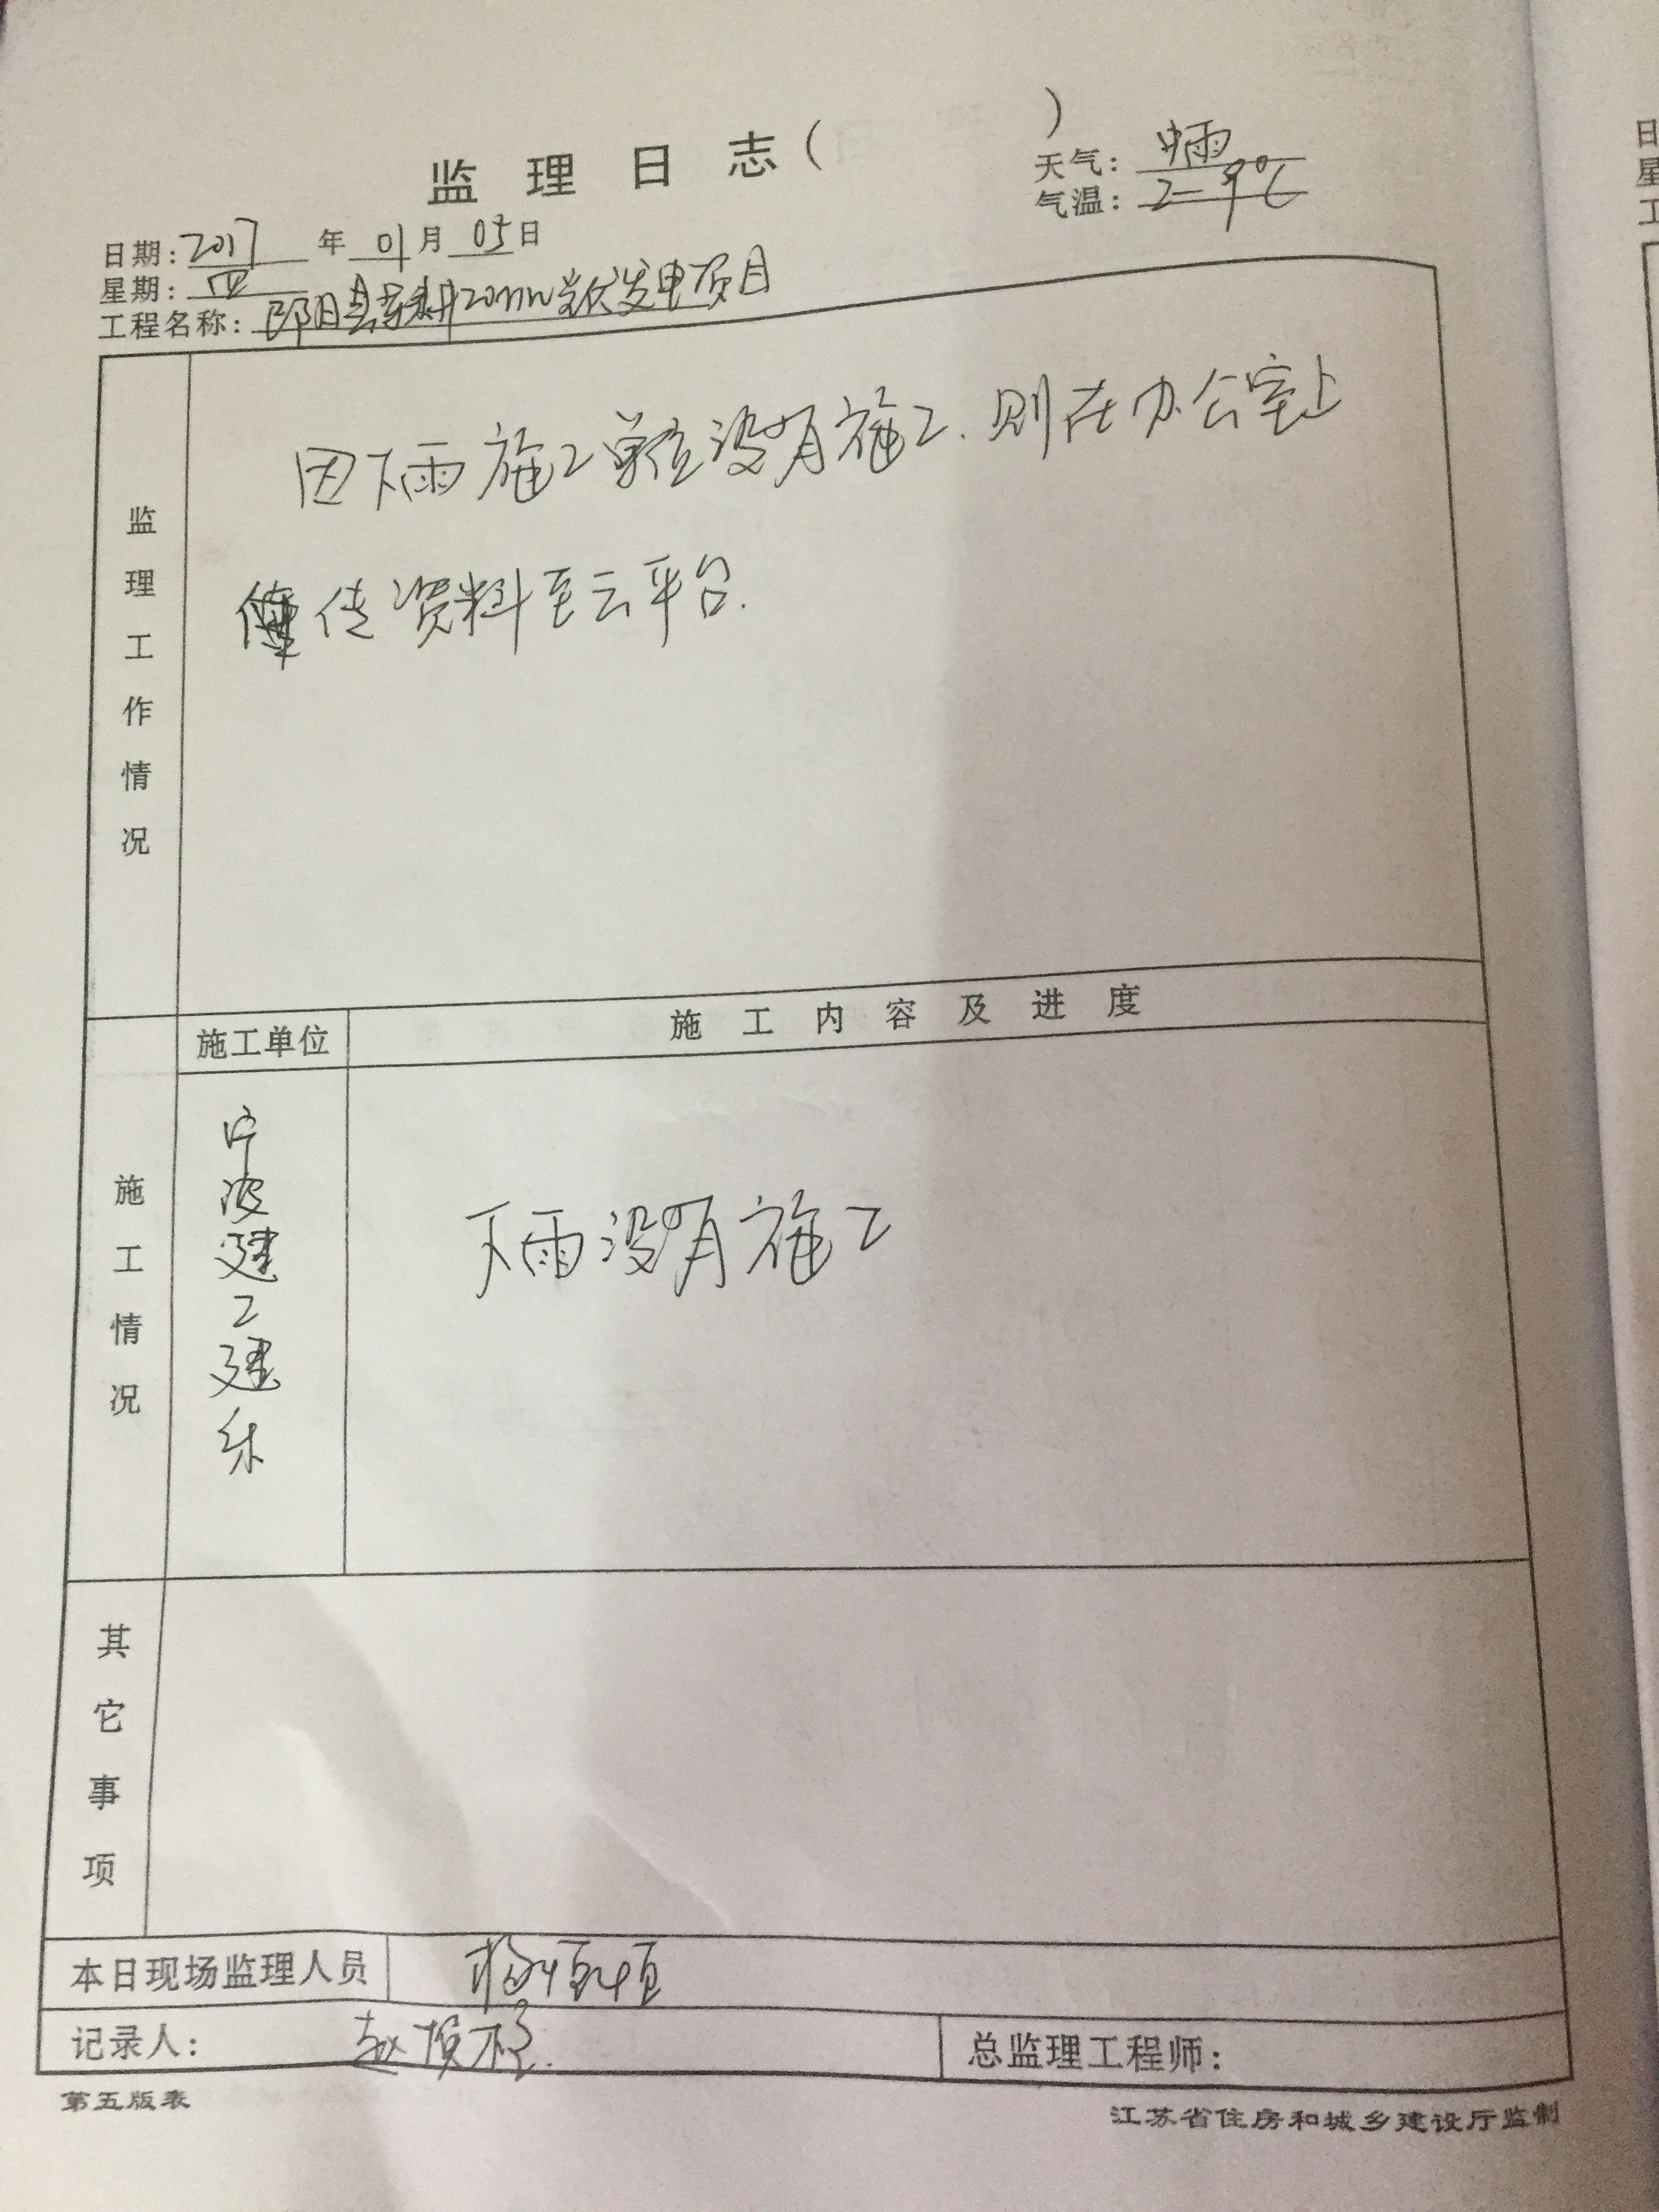 监理日志（ ）
天气：中雨
气温：2-9℃
日期：2017年01月05日
星期：四
工程名称：邵阳县 20MW光伏发电项目
监理工作情况
因下雨施工单位没有施工.则在办公室上
传资料至云平台.
施工单位
施工内容及进度
施工情况
宁波建工建乐
下雨没有施工
其它事项
本日现场监理人员
记录人：赵
总监理工程师：
第五版表
江苏省住房和城乡建设厅监制
日
星
工